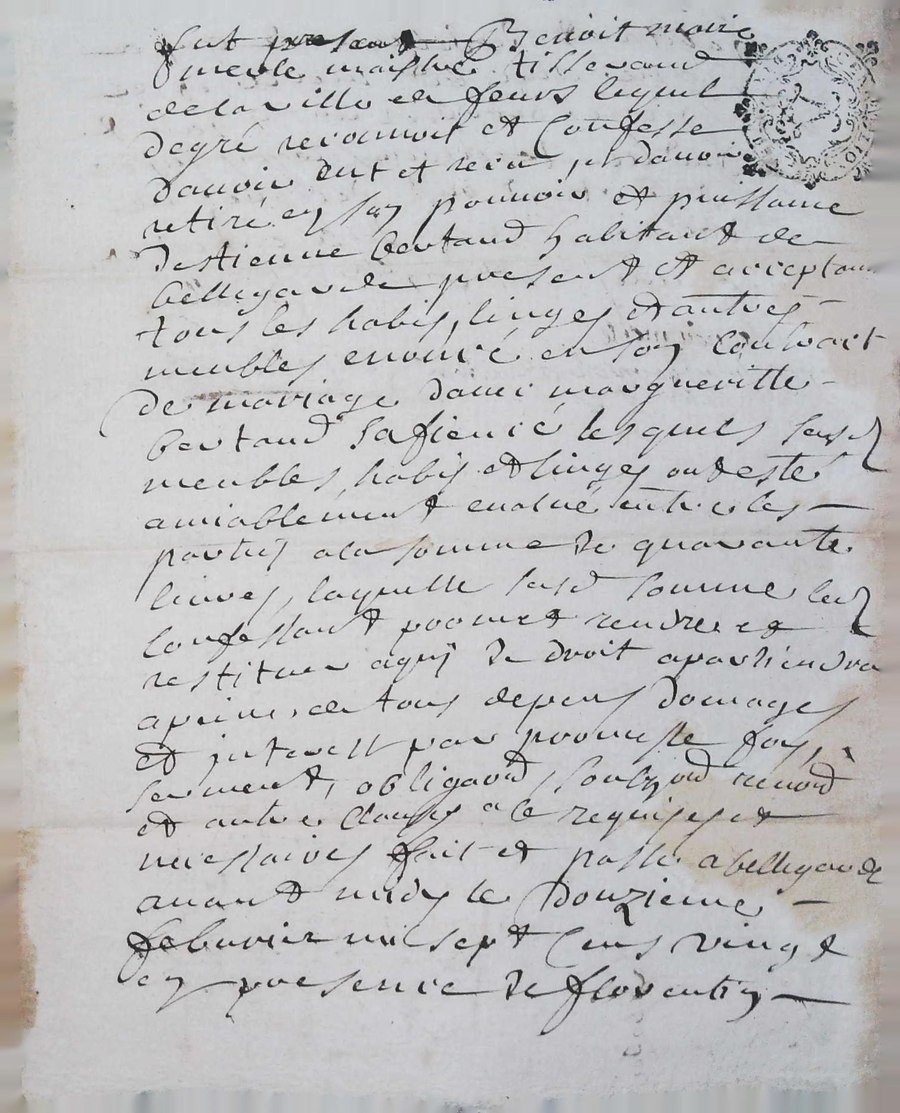 fut present Benoit marie
merle maistre tisserand
de la ville de feurs lequel
degré reconnoit et Confesse
davoir eut et receu et davoir
retiré en son pouvoir et puissance
destienne bertaud habitant de
bellegarde present et acceptant
tous les habis, linges et autres
meubles enoncé en son Contrait
de mariage davec margueritte
bertaud sa fiencé lesquels susd
meubles, habis et linges ont esté
amiablement evalué entre les
partis a la somme de quarante
livres, laquelle susd somme led
Confessant promet rendre et
restituer a quy de droit apartiendra
a peine de tous depens domages
et interest par promesse foy,
serment, obligaond, soubzond renond
et autre Clauses a ce requises et
necessaires fait et passé a bellegarde
avant midy le Douzieme
febvrier mil sept Cens vingt
en presence de florentin